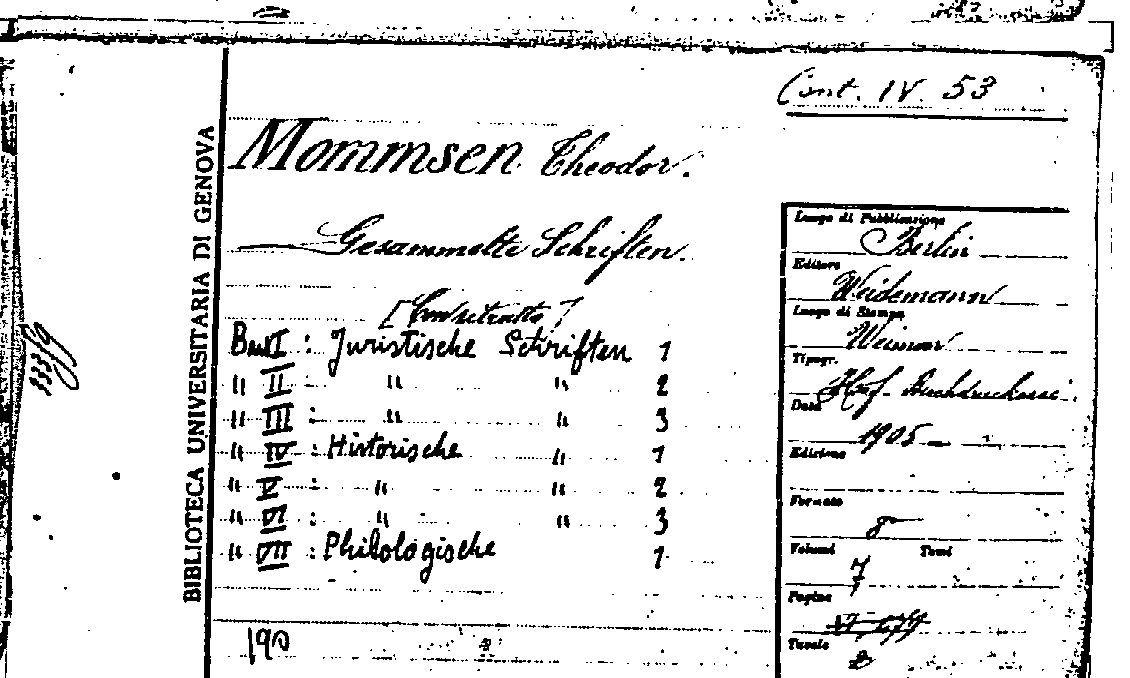 Cont. IV. 53
BIBLIOTECA UNIVERSITARIA DI GENOVA
Mommsen Theodor.
Gesammelte Schriften.
[Con ritratto]
Band I : Juristische Schriften 1
" II : " " 2
" III : " " 3
" IV : Historische " 1
" V : " " 2
" VI : " " 3
" VII : Philologische 1
190
Luogo di Pubblicazione
Berlin
Editore
Weidemann
Luogo di Stampa
Weimar
Tipogr.
Hof-Buchdruckerei.
Data
1905 -
Edizione
Formato
8°
Volumi Tomi
7
Pagine
Tavole